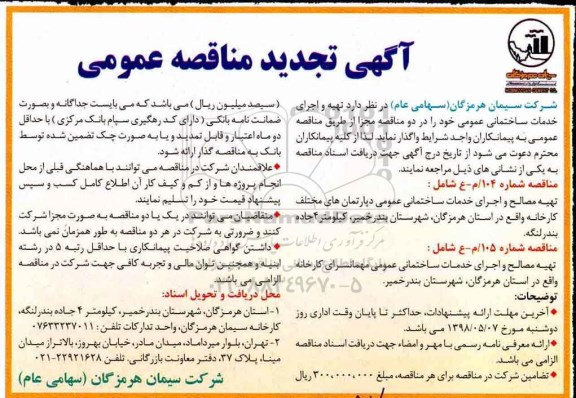 آگهی تجدید مناقصه عمومی
شرکت سیمان هرمزگان(سهامی عام) در نظر دارد تهیه و اجرای
خدمات ساختمانی عمومی خود را در دو مناقصه مجزا از طریق مناقصه
عمومی به پیمانکاران واجد شرایط واگذار نماید. لذا از کلیه پیمانکاران
محترم دعوت می شود از تاریخ درج آگهی جهت دریافت اسناد مناقصه
به یکی از نشانی های ذیل مراجعه نمایند.
مناقصه شماره ۱۰۴/م-ع شامل :
تهیه مصالح و اجرای خدمات ساختمانی عمومی دپارتمان های مختلف
کارخانه واقع در استان هرمزگان، شهرستان بندرخمیر، کیلومتر ۴جاده
بندرلنگه.
مناقصه شماره ۱۰۵/م-ع شامل :
تهیه مصالح و اجرای خدمات ساختمانی عمومی مهمانسرای کارخانه
واقع در استان هرمزگان، شهرستان بندرخمیر.
توضیحات:
آخرین مهلت ارائه پیشنهادات، حداکثر تا پایان وقت اداری روز
دوشنبه مورخ ۱۳۹۸/۰۵/۰۷ می باشد.
ارائه معرفی نامه رسمی با مهر و امضاء جهت دریافت اسناد مناقصه
الزامی می باشد.
تضامین شرکت در مناقصه برای هر مناقصه، مبلغ ۳۰۰,۰۰۰,۰۰۰ ریال
(سیصد میلیون ریال) می باشد که می بایست جداگانه و بصورت
ضمانت نامه بانکی (دارای کد رهگیری سپام بانک مرکزی) با حداقل
دو ماه اعتبار و قابل تمدید و یا به صورت چک تضمین شده توسط
بانک به مناقصه گذار ارائه شود.
علاقمندان شرکت در مناقصه می توانند با هماهنگی قبلی از محل
انجام پروژه ها و از کم و کیف کار آن اطلاع کامل کسب و سپس
پیشنهاد قیمت خود را تسلیم نمایند.
متقاضیان می توانند در یک یا دو مناقصه به صورت مجزا شرکت
کنند و ضرورتی به شرکت در هر دو مناقصه به طور همزمان نمی باشد.
داشتن گواهی صلاحیت پیمانکاری با حداقل رتبه ۵ در رشته
ابنیه و همچنین توان مالی و تجربه کافی جهت شرکت در مناقصه
الزامی می باشد.
محل دریافت و تحویل اسناد:
۱- استان هرمزگان، شهرستان بندرخمیر، کیلومتر ۴ جاده بندرلنگه،
کارخانه سیمان هرمزگان، واحد تدارکات تلفن: ۰۷۶۳۳۲۳۷۰۱۱
۲- تهران، بلوار میرداماد، میدان مادر، خیابان بهروز، بالاتر از میدان
مینا، پلاک ۳۷، دفتر معاونت بازرگانی. تلفن: ۲۲۹۲۱۶۲۸-۰۲۱
شرکت سیمان هرمزگان (سهامی عام)